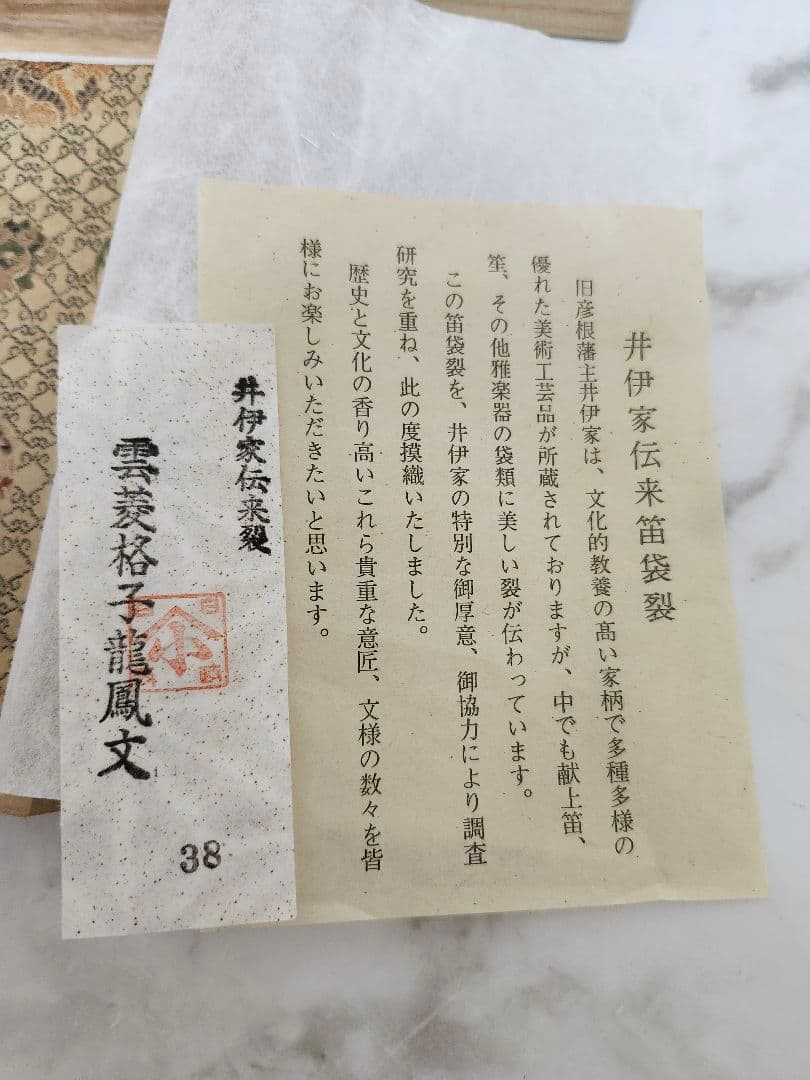 井伊家伝来笛袋裂
旧彦根藩主井伊家は、文化的教養の髙い家柄で多種多様の
優れた美術工芸品が所蔵されておりますが、中でも献上笛、
笙、その他雅楽器の袋類に美しい裂が伝わっています。
この笛袋裂を、井伊家の特別な御厚意、御協力により調査
研究を重ね、此の度摸織いたしました。
歴史と文化の香り高いこれら貴重な意匠、文様の数々を皆
様にお楽しみいただきたいと思います。
井伊家伝来裂
雲菱格子龍鳳文
38